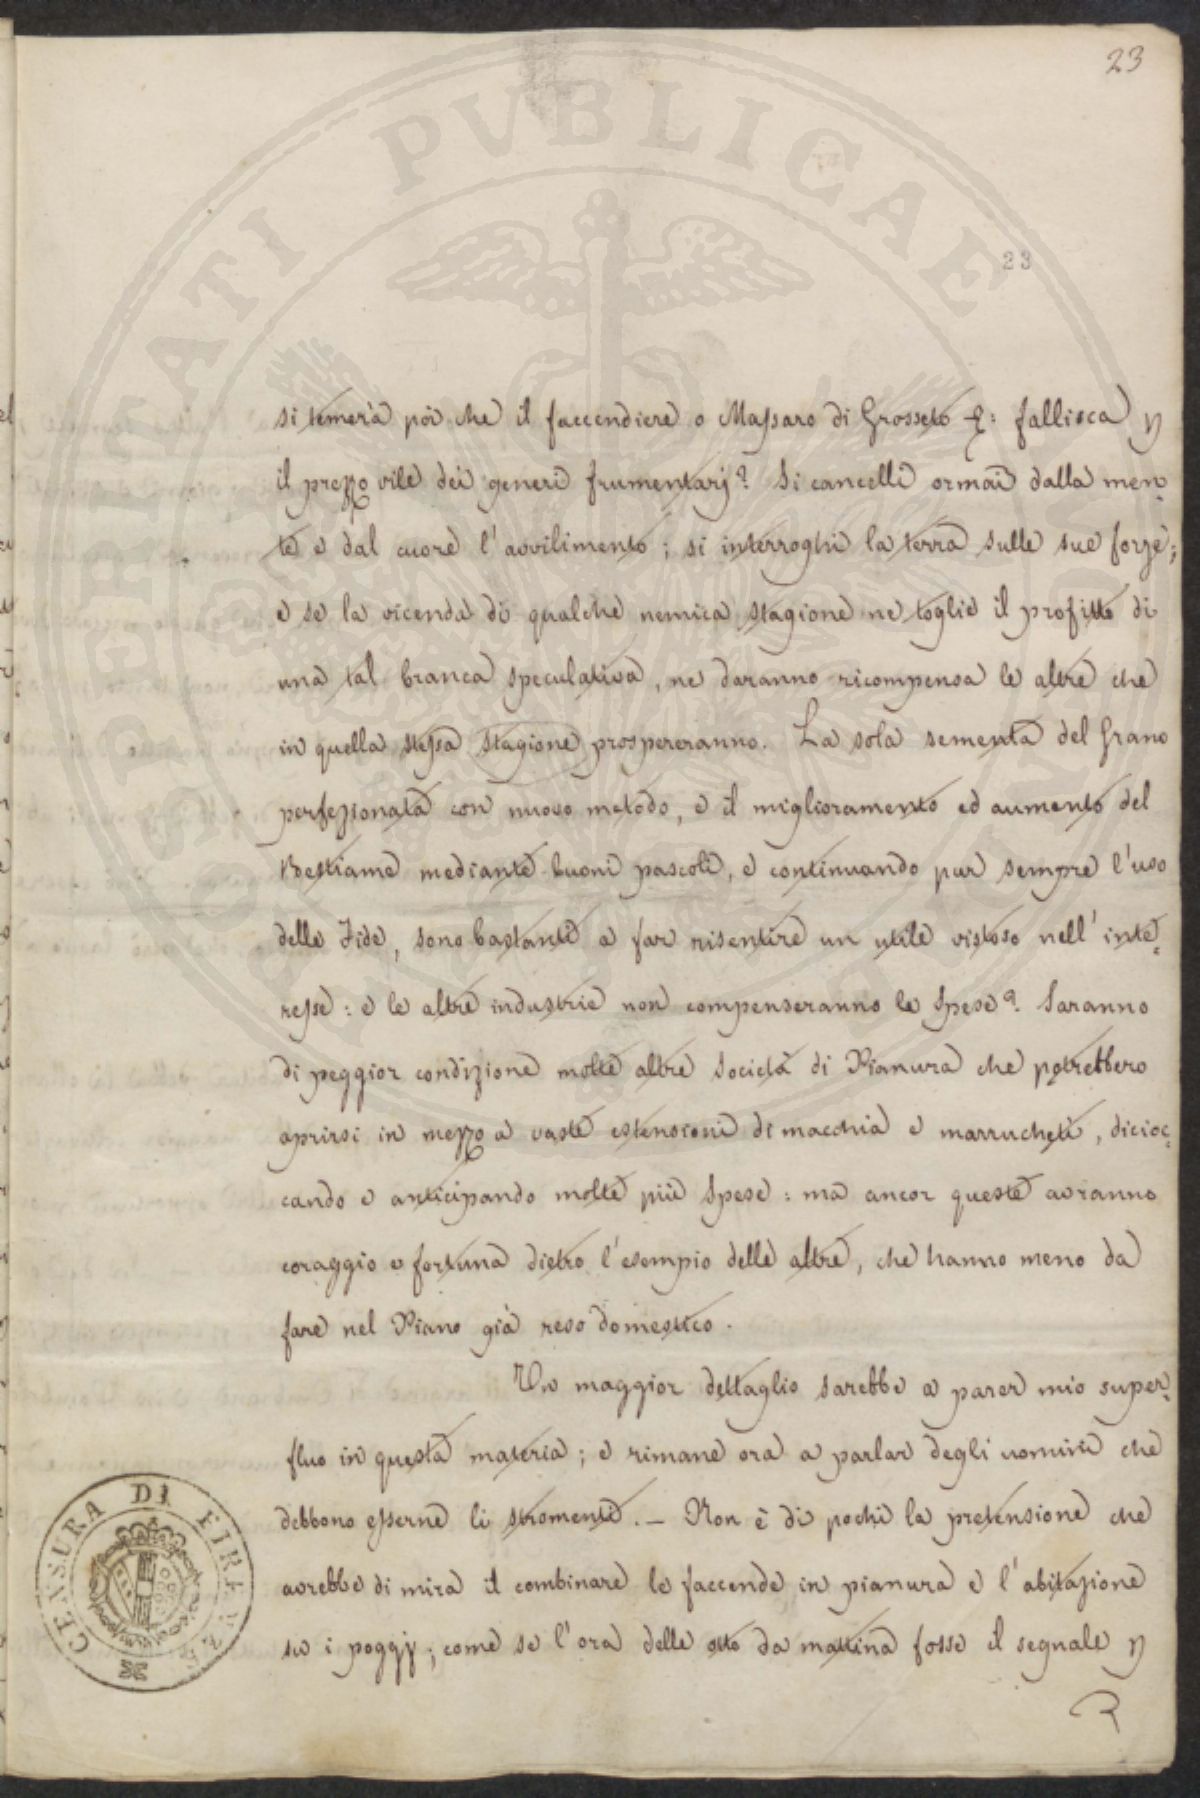 23
23
si temerà pòi che il faccendiere o Massaro di Grosseto &: fallisca p
il prezzo vile dei generi frumentarj? Si cancelli ormai dalla men=
te e dal cuore l'avvilimento; si interroghi la terra sulle sue forze;
e se la vicenda di qualche nemica stagione ne toglie il profitto di
una tal branca speculativa, ne daranno ricompensa le altre che
in quella stessa stagione prospereranno. La sola sementa del Grano
perfezionata con nuovo metodo, e il miglioramento ed aumento del
Bestiame mediante buoni pascoli, e continuando pur sempre l'uso
delle Fide, sono bastanti a far risentire un utile vistoso nell'inte=
resse: e le altre industrie non compenseranno le Spese? Saranno
di peggior condizione molte altre Società di Pianura che potrebbero
aprirsi in mezzo a vaste estensioni di macchia e marrucheti, dicioc=
cando e anticipando molte più Spese: ma ancor queste avranno
coraggio e fortuna dietro l'esempio delle altre, che hanno meno da
fare nel Piano già reso domestico.
Un maggior dettaglio sarebbe a parer mio super=
fluo in questa materia; e rimane ora a parlar degli uomini che
debbono esserne li stromenti. — Non è di pochi la pretensione che
avrebbe di mira il combinare le faccende in pianura e l'abitazione
su i poggj; come se l'ora delle otto da mattina fosse il segnale p
CENSURA DI FIRENZE
PROSPERITATI PVBLICAE